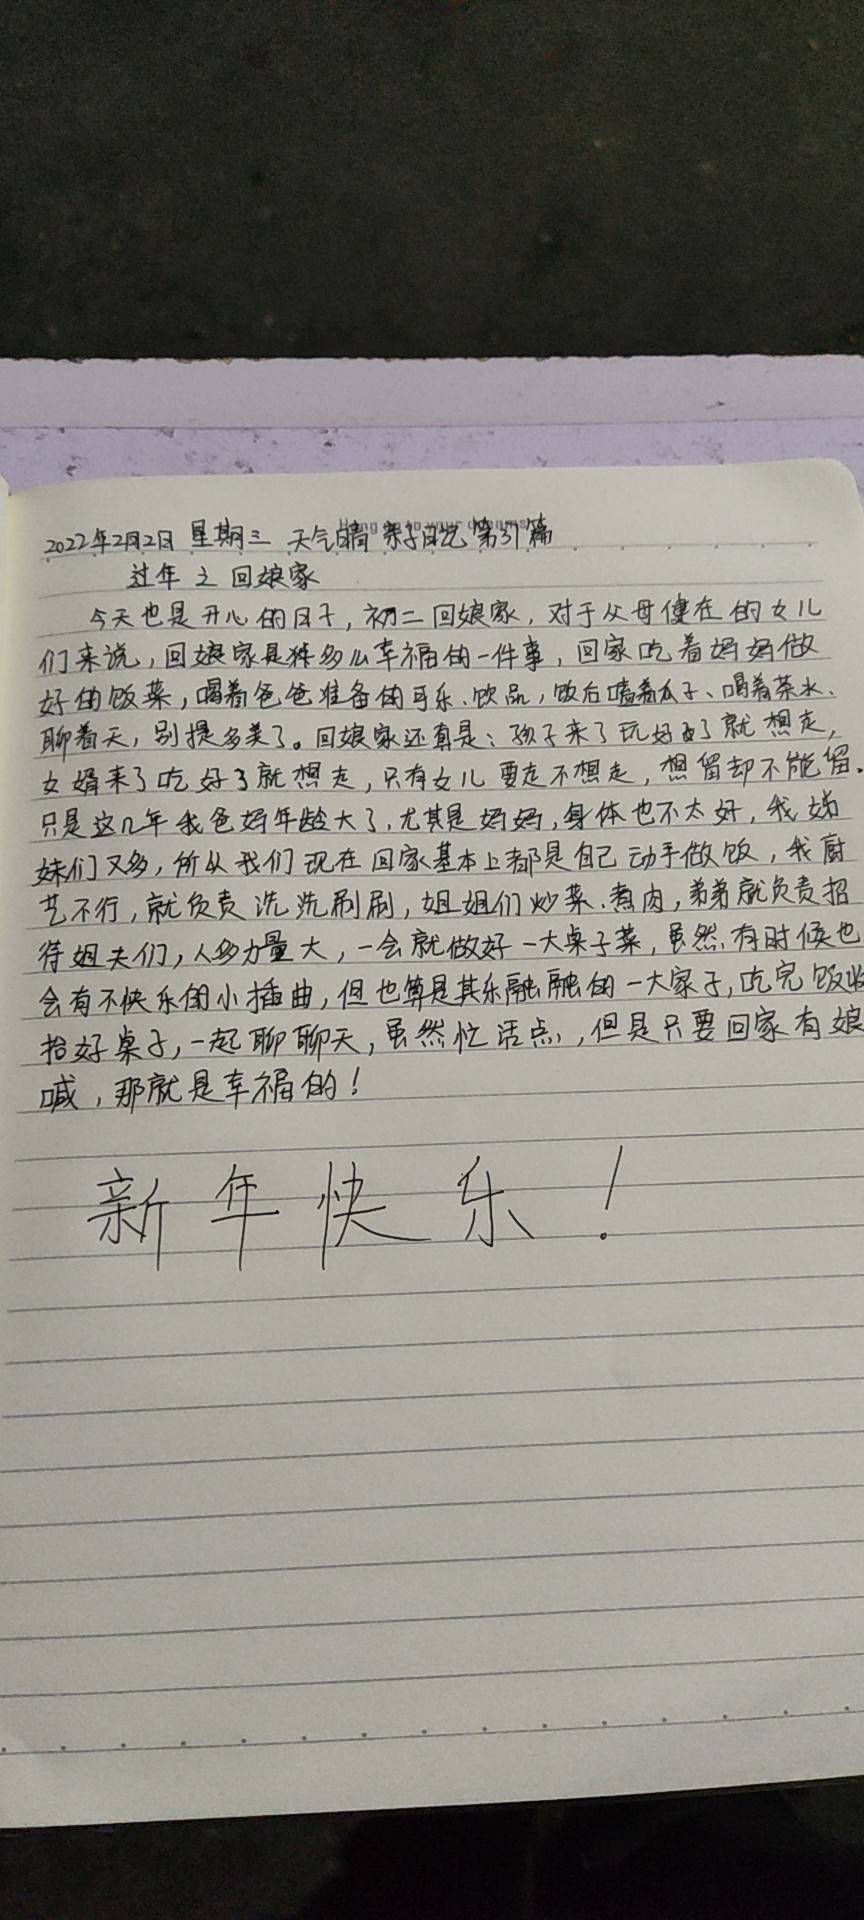 Hang on to your dreams
2022年2月2日 星期三 天气晴 亲子日记 第37篇
过年之回娘家
今天也是开心的日子，初二回娘家，对于父母健在的女儿
们来说，回娘家是件多么幸福的一件事，回家吃着妈妈做
好的饭菜，喝着爸爸准备的可乐、饮品，饭后嗑着瓜子、喝着茶水、
聊着天，别提多美了。回娘家还真是：孩子来了玩好了就想走，
女婿来了吃好了就想走，只有女儿要走不想走，想留却不能留。
只是这几年我爸妈年龄大了，尤其是妈妈，身体也不太好，我姊
妹们又多，所以我们现在回家基本上都是自己动手做饭，我厨
艺不行，就负责洗洗刷刷，姐姐们炒菜、煮肉，弟弟就负责招
待姐夫们，人多力量大，一会就做好一大桌子菜，虽然有时候也
会有不快乐的小插曲，但也算是其乐融融的一大家子，吃完饭收
拾好桌子，一起聊聊天，虽然忙活点，但是只要回家有娘
喊，那就是幸福的！
新年快乐！